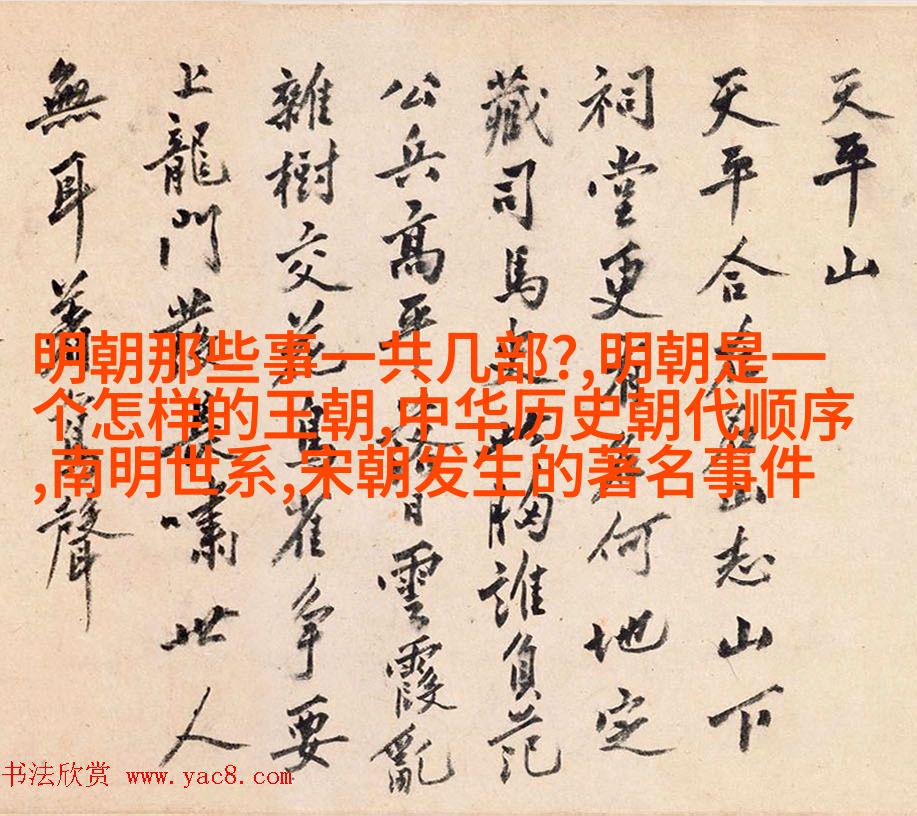 天平山
天平合山志山下
祠堂更有何地定
藏司馬此胸誰負范
公兵高平雲霞亂
雜樹交花鳥雀爭要
上龍門發長嘯世人
無耳聲
明朝那些事一共几部?,明朝是一
个怎样的王朝,中华历史朝代顺序
,南明世系,宋朝发生的著名事件
书法欣赏 www.yac8.com